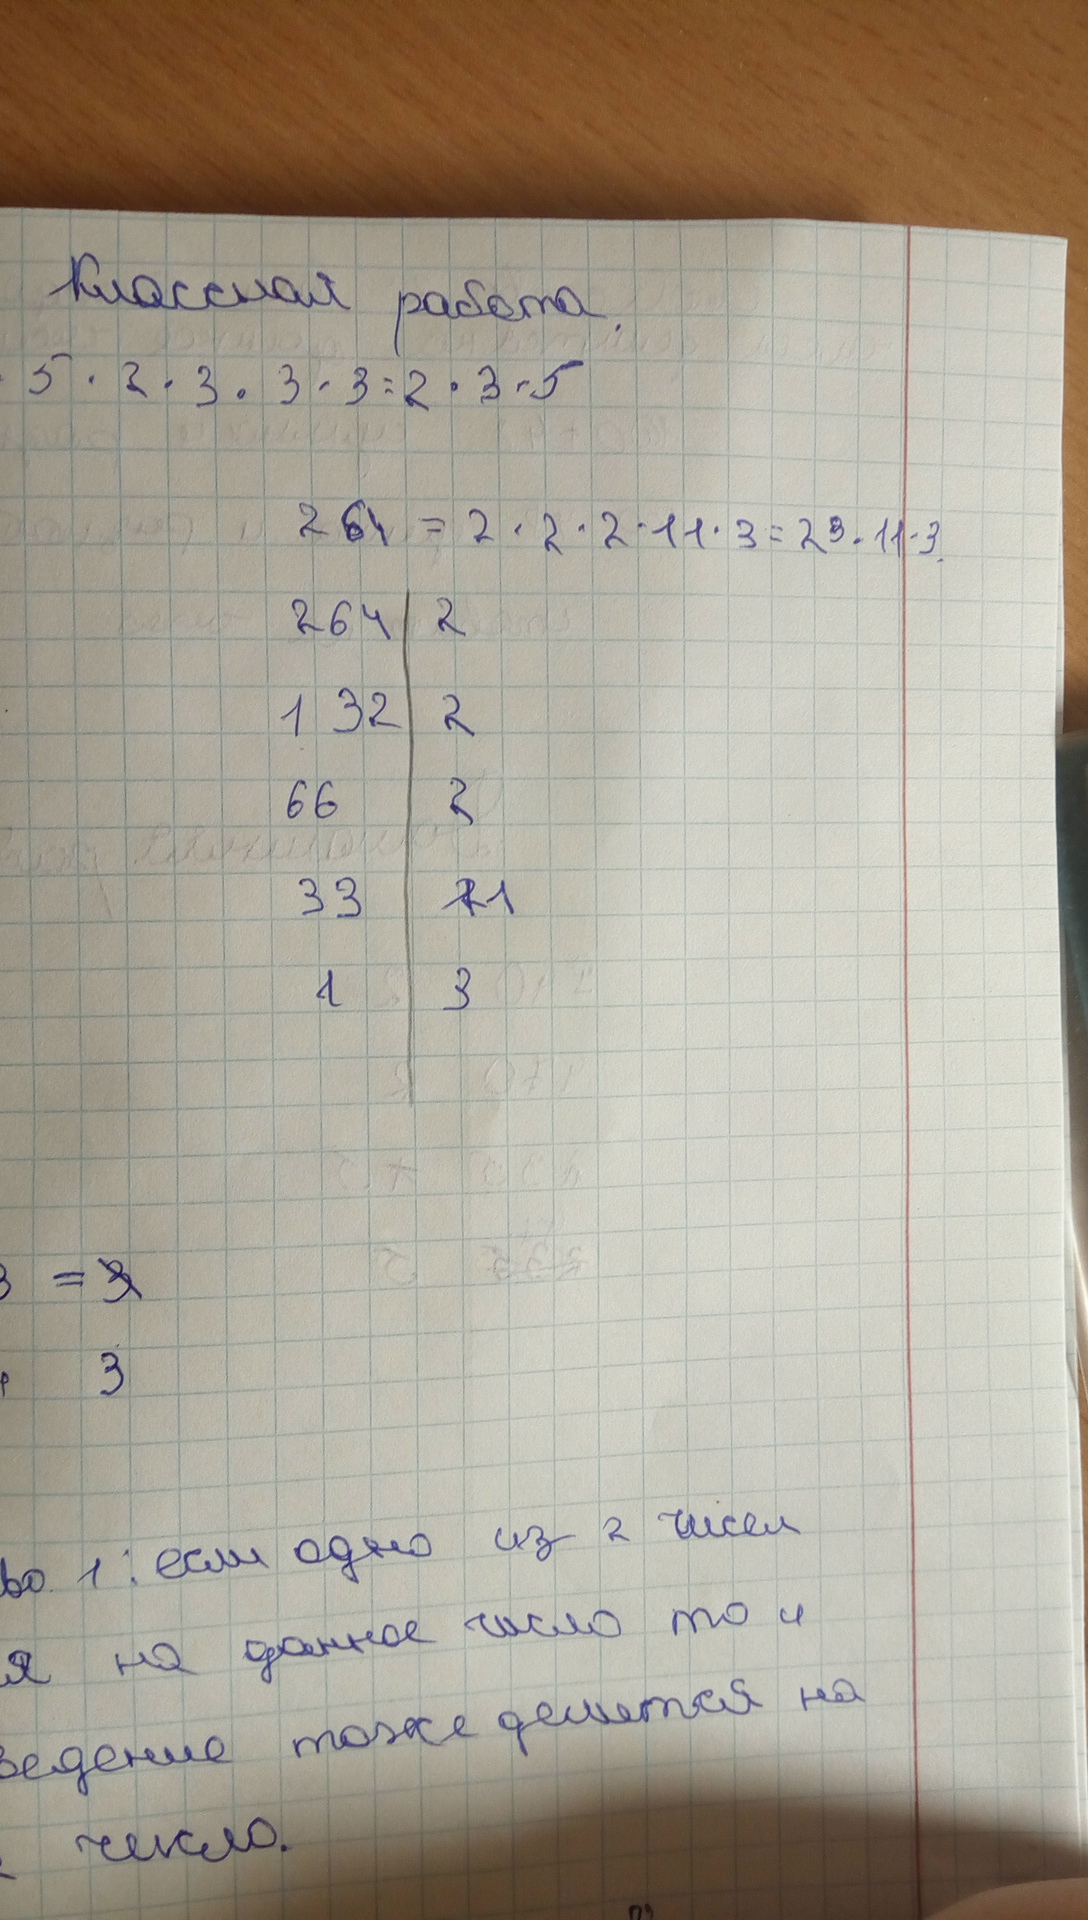 Классная работа.
· 5 · 2 · 3 · 3 · 3 = 2 · 3 · 5
264 = 2 · 2 · 2 · 11 · 3 = 2³ · 11 · 3.
264 | 2
132 | 2
66 | 2
33 | 11
1 | 3
3 = 3
3
во 1: если одно из 2 чисел
я на данное число то и
ведение тоже делиться на
число.